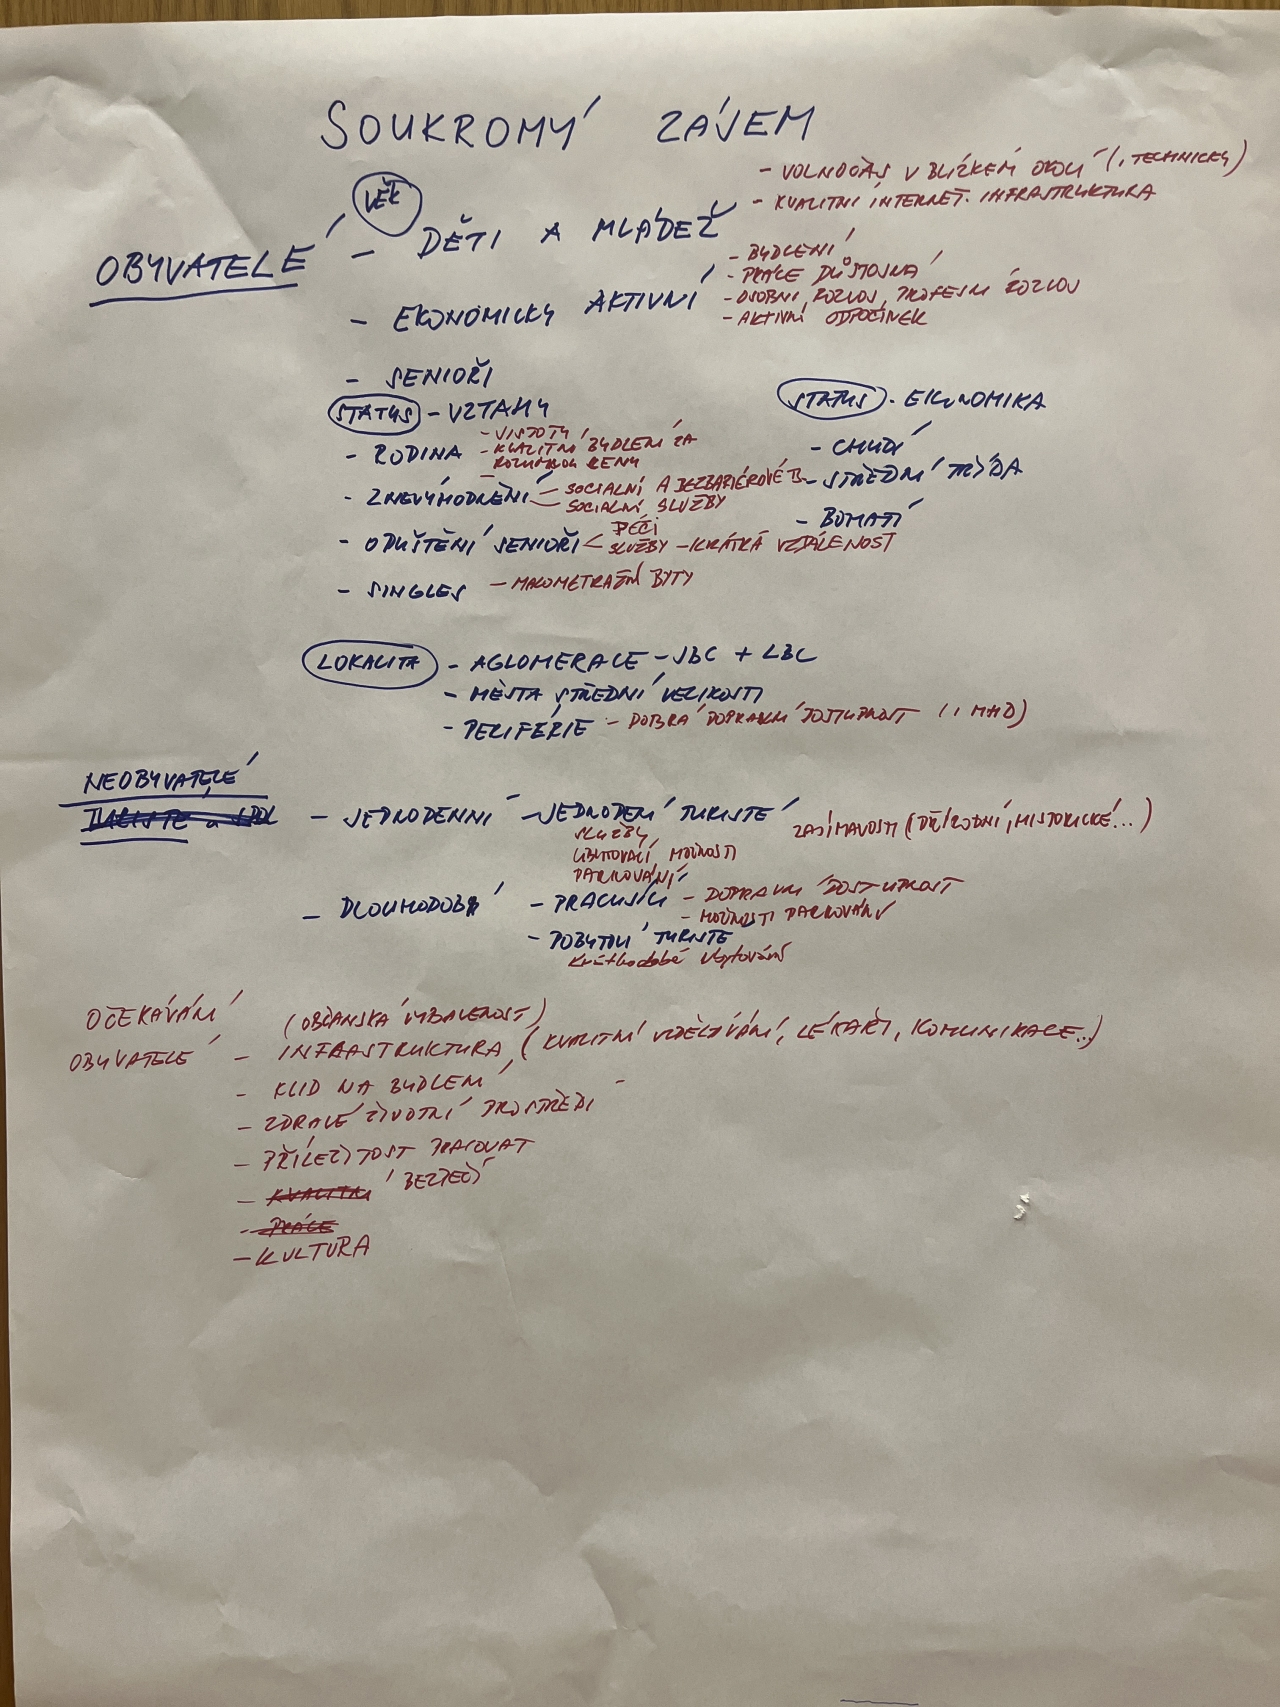 SOUKROMÝ ZÁJEM
- VOLNOČAS V BLÍZKÉM OKOLÍ (I TECHNICKY)
- KVALITNÍ INTERNET. INFRASTRUKTURA
VĚK
OBYVATELÉ - DĚTI A MLÁDEŽ
- BYDLENÍ
- PRÁCE DŮSTOJNÁ
- OSOBNÍ ROZVOJ, PROFESNÍ ROZVOJ
- AKTIVNÍ ODPOČINEK
- EKONOMICKY AKTIVNÍ
- SENIOŘI
STATUS - VZTAHY
- RODINA
- KVALITNÍ BYDLENÍ ZA
ROZUMNOU CENU
- ZNEVÝHODNĚNÍ - SOCIALNÍ A BEZBARIÉROVÉ B.
- SOCIALNÍ SLUŽBY
- OPUŠTĚNÍ SENIOŘI < PÉČI
SLUŽBY - KRÁTKÁ VZDÁLENOST
- SINGLES - MALOMETRAŽNÍ BYTY
STATUS - EKONOMIKA
- CHUDÍ
- STŘEDNÍ TŘÍDA
- BOHATÍ
LOKALITA - AGLOMERACE - JBC + LBC
- MĚSTA STŘEDNÍ VELIKOSTI
- PERIFÉRIE - DOBRÁ DOPRAVNÍ DOSTUPNOST (I MHD)
NEOBYVATELÉ
TURISTÉ a SPOL - JEDNODENNÍ - JEDNODENÍ TURISTÉ ZAJÍMAVOSTI (PŘÍRODNÍ, HISTORICKÉ...)
SLUŽBY
UBYTOVACÍ MOŽNOSTI
PARKOVÁNÍ
- DLOUHODOBÝ - PRACUJÍCÍ - DOPRAVNÍ DOSTUPNOST
- MOŽNOSTI PARKOVÁNÍ
- POBYTOVÍ TURISTÉ
Krátkodobé ubytování
OČEKÁVÁNÍ (OBČANSKÁ VYBAVENOST)
OBYVATELÉ - INFRASTRUKTURA, (KVALITNÍ VZDĚLÁVÁNÍ, LÉKAŘI, KOMUNIKACE...)
- KLID NA BYDLENÍ
- ZDRAVÉ ŽIVOTNÍ PROSTŘEDÍ
- PŘÍLEŽITOST PRACOVAT
- KVALITNÍ BEZPEČÍ
- PRÁCE
- KULTURA